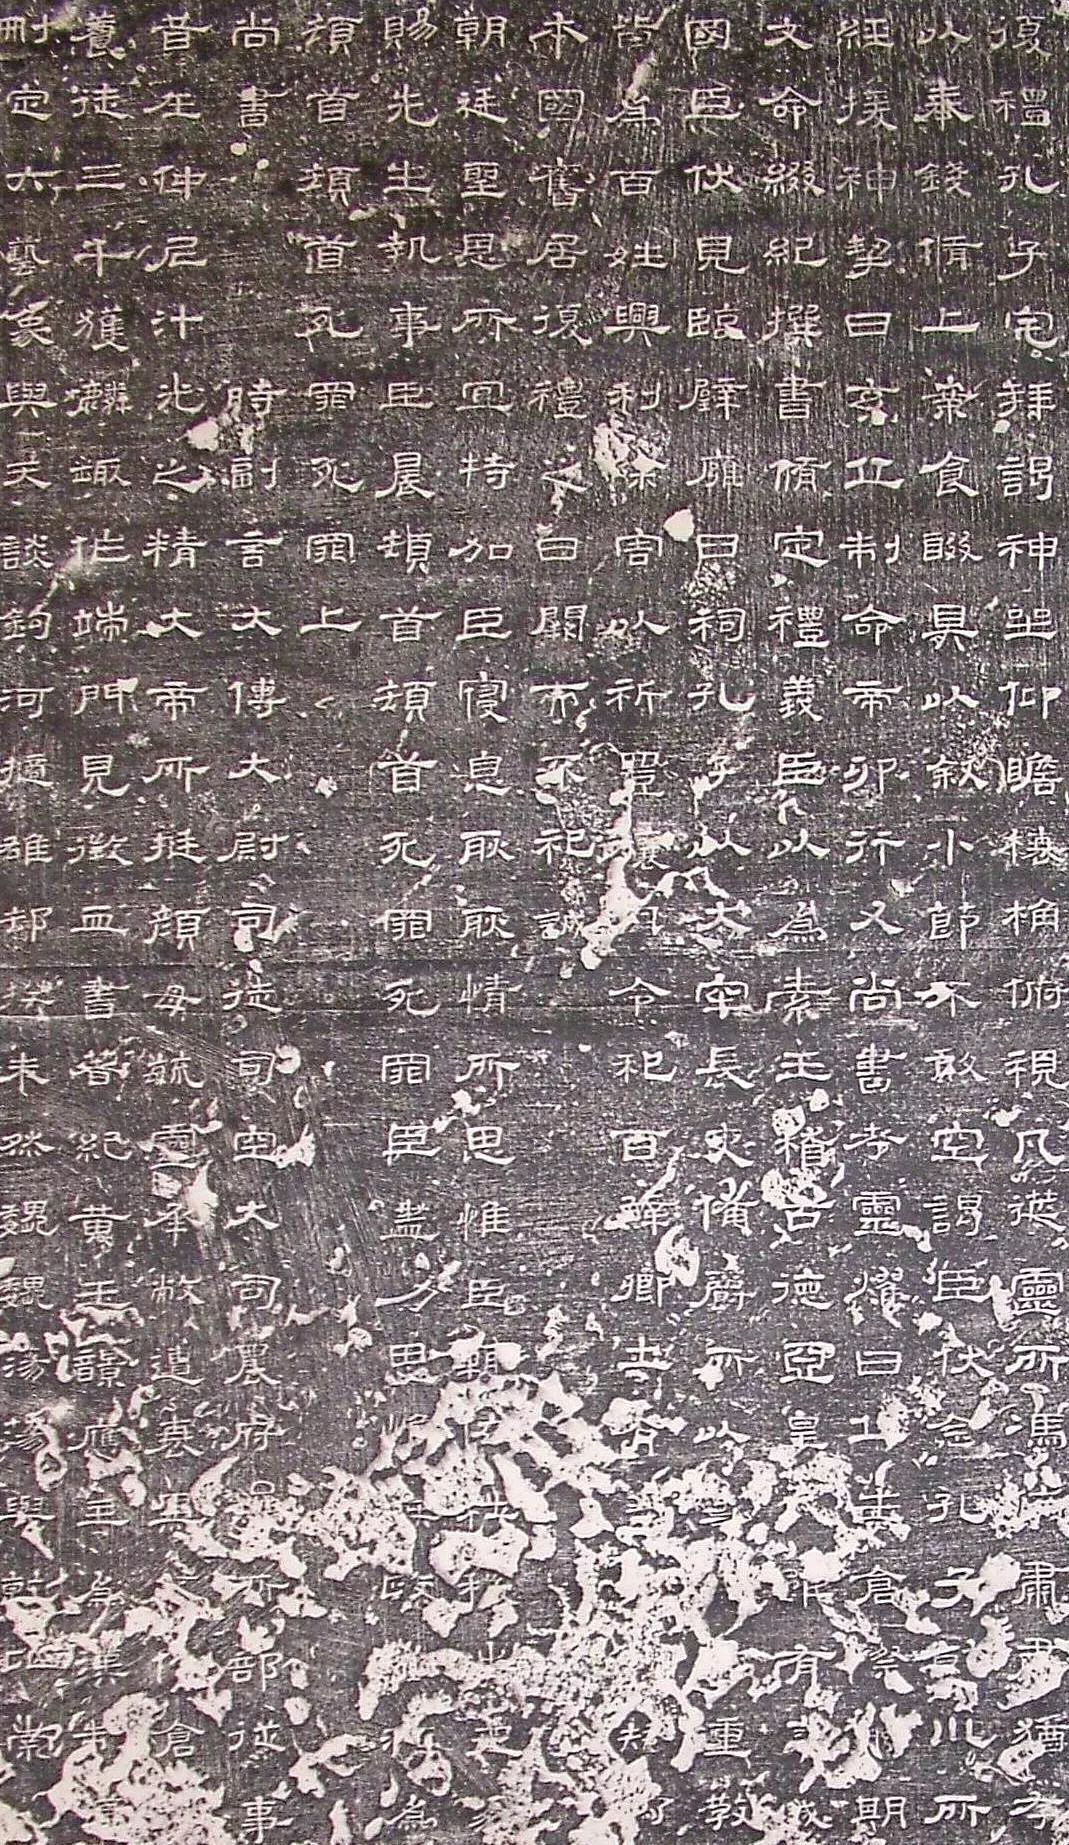 復禮孔子宅拜謁神坐仰瞻榱桷俯視几筵靈所馮依肅肅猶存
以奉錢脩上案食醊具以叙小節不敢空謁臣伏念孔子乾川所
經援神挈曰玄丘制命帝卯行又尚書考靈燿曰丘生倉際觸期
文命綴紀撰書脩定禮義臣以為素王稽古德亞皇代雖有襃成
國臣伏見臨辟廱日祠孔子以大牢長吏備爵所以尊先師重教
皆為百姓興利除害以祈豐穰月令祀百辟卿士有益於民矧乃
本國舊居復禮之日闕而不祀誠
朝廷聖恩所宜特加臣寢息耿耿情所思惟臣輒依社稷出王家
賜先生執事臣晨頓首頓首死罪死罪臣盡力思惟庶政報稱為
頓首頓首死罪死罪上
尚書時副言大傅大尉司徒司空大司農府治所部從事
昔在仲尼汁光之精大帝所挺顏母毓靈承敝遭衰黑不代倉
養徒三千獲麟趣作端門見徵血書著紀黃玉韻應主為漢制道
刪定六藝象與天談鉤河擿雒却揆未然魏魏蕩蕩與乾比崇